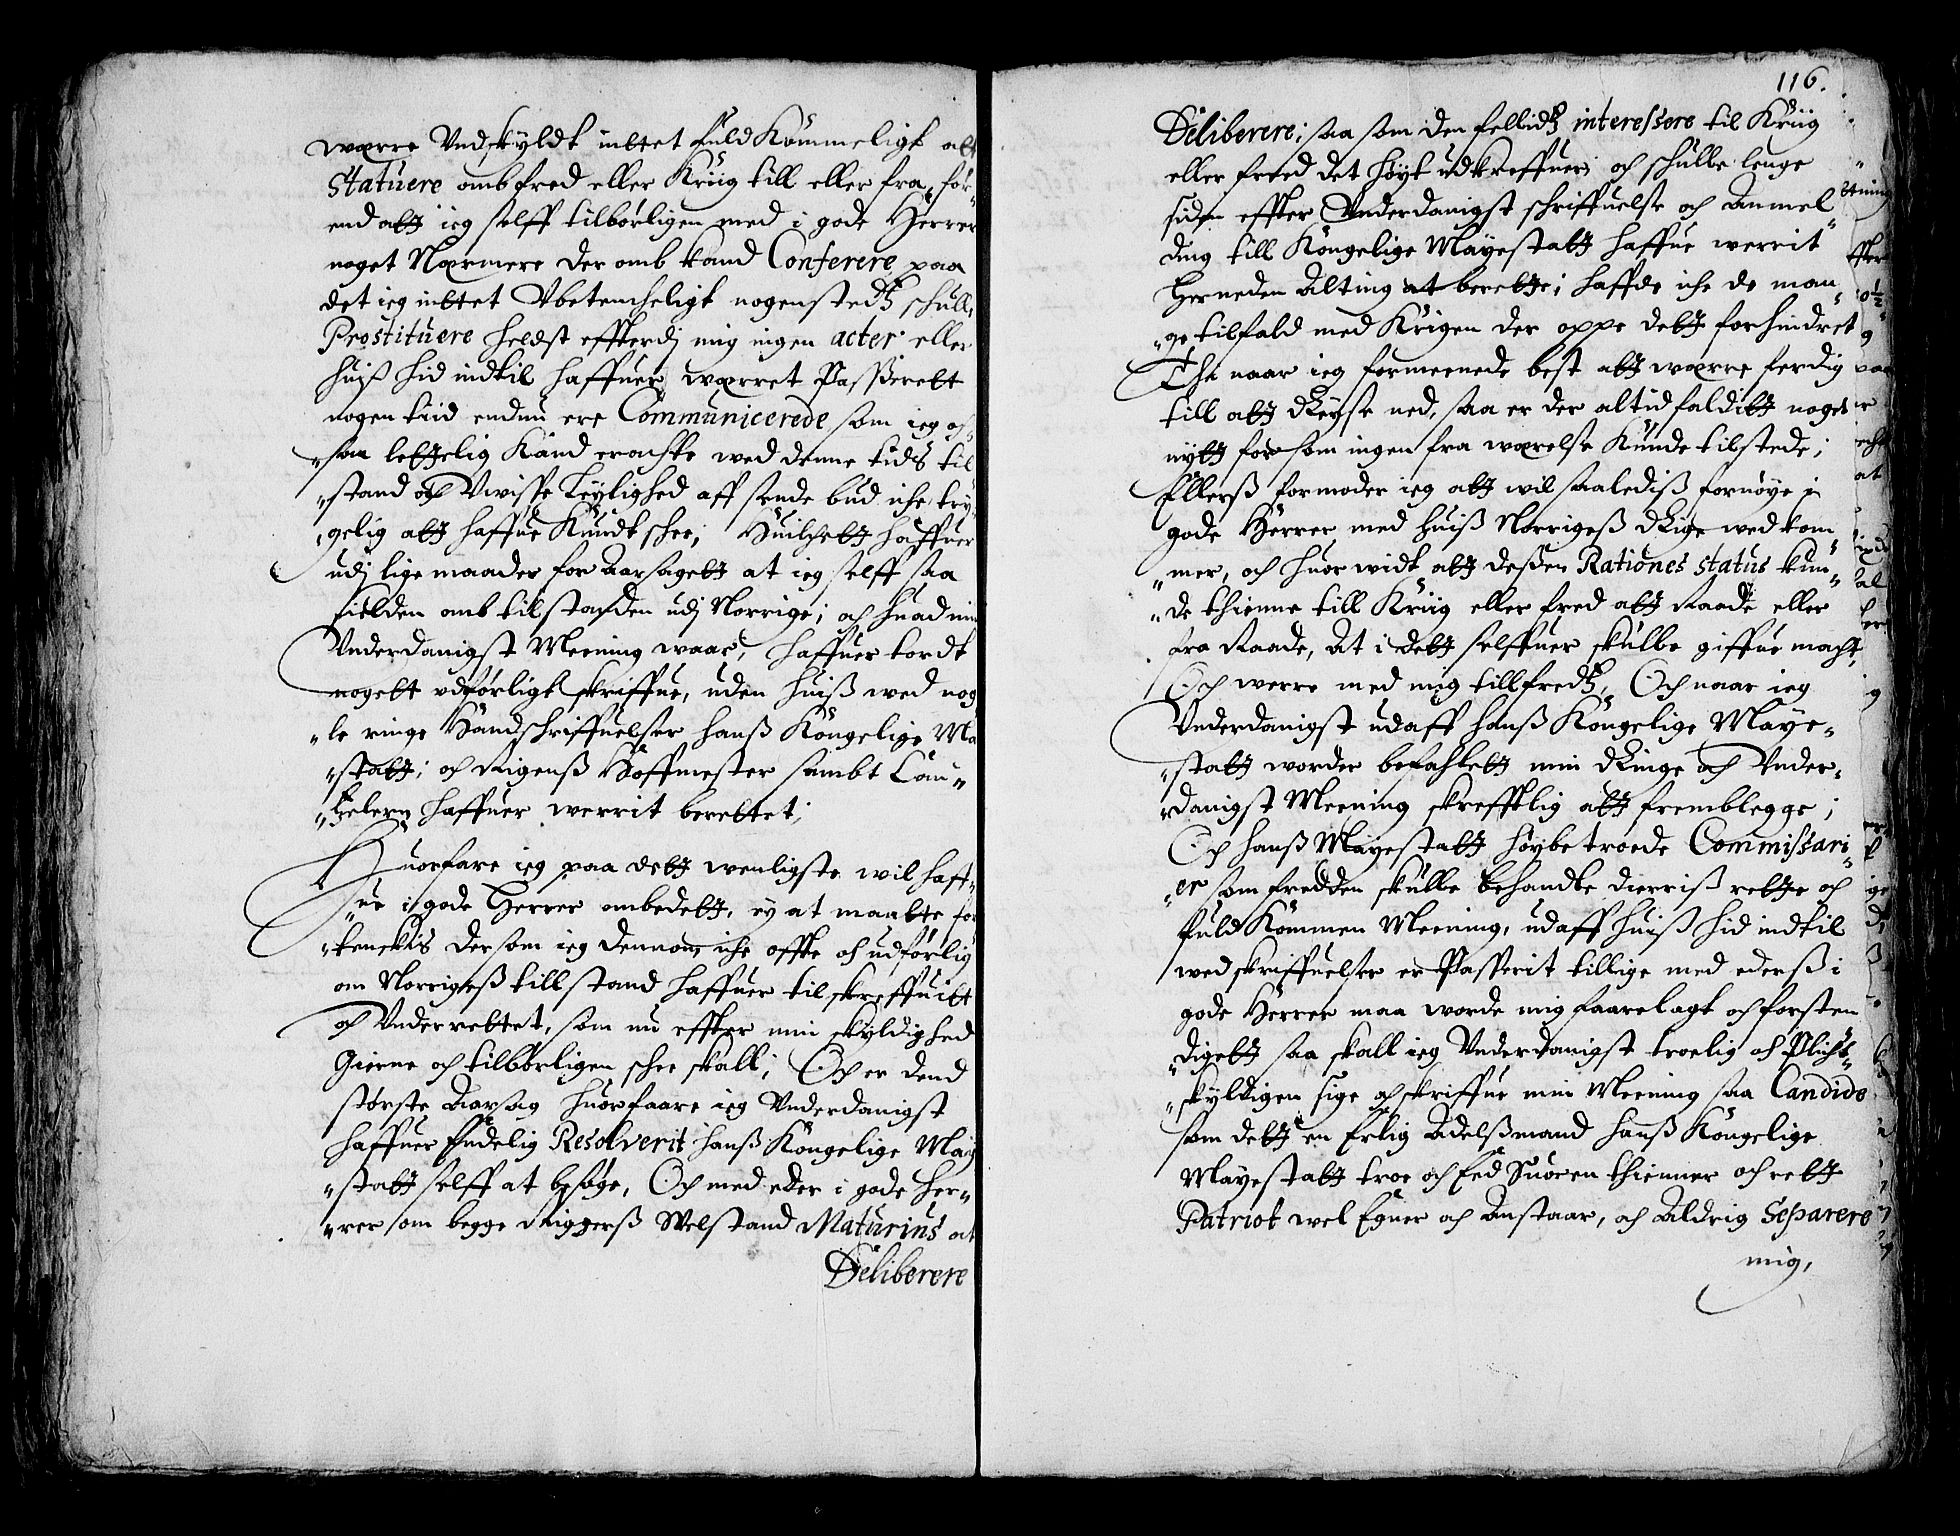 wærre Vndskyldt indtet fuldKommeligt att
Statuere omb fred eller Kriig till eller fra, för„
end attj ieg selff tilbörligen med i gode Herrer
noget Nærmere der omb kand Conferere, paa
det ieg indtet Vbetencheligt nogenstedtz schulle
Prostituere heldst effterdj mig ingen acter eller
huiß hid indtil haffuer wærret Passerett
nogen tiid endnu ere Communicerede som ieg og„
„saa lettelig Kand eracte wed denne tids til„
„stand och Vwisse Leylighed aff sende bud iche try„
„gelig attj haffue Kundt schee; Huilchettj haffuer
udj lige maader for Aarsagettj at ieg selff saa
sielden omb tilstanden udj Norrige; och huad min
Vnderdanigst Meening waar, haffuer tordt
nogett vdförligt skriffue, uden huiß wed nog„
„le ringe Handschriffuelser hanß Kongelige Ma
„stattj; och Rigenß Hoffmester sambt Can„
„tzelern haffuer werrit berettet;
Huorfare ieg paa dettj wenligste wil haff„
„ue i gode Herrer ombedettj, ey at maatte for
„tenckis dersom ieg dennom iche offte och udförlig
om Norrigeß tillstand haffuer tilskreffuitt
och Vnderrettet, som nu effter min skyldighed
Gierne och tilbörligen schee skall; Och er dend
störste Aarsag huorfaare ieg Vnderdanigst
haffuer Endelig Resolverit hanß Kongelige May
„stattj selff at besöge, Och med eder i gode Her„
„rer som begge Riggerß Welstand Maturius at
Deliberere
116.
Deliberere; saa som den fellidtz interessere til Kriig
eller freed det höyt udkreffuer; och schulle lenge
siden effter Vnderdanigst schriffuelse och Anmel„
ding till Kongelige Mayestattj haffue werrit
herneden Alting at berettje; haffde iche de man„
„ge tilfald med Krigen der oppe dettj forhindret
Thi naar ieg formeenede best attj wærre ferdig
till attj Reyse ned, saa er der altid falditt noget
nytt for som ingen fra wærelse Kunde tilstede;
Ellerß formoder ieg attj wil saalediß fornöye i
gode Herrer med huiß Norrigeß Rige wed kom„
„mer, och huor widt attj deßen Rationes status kun„
„de thienne till Kriig eller fred attj Raade eller
fra Raade, At i dettj selffuer skulle giffue macht,
Och werre med mig tillfredtz, Och naar ieg
Vnderdanigst udaff hanß Kongelige Maye„
„stattj worder befahlettj min Ringe och Vnder„
„danigst Meening skrefftlig attj fremblegge;
Och hanß Mayestattj höybetroede Commissari„
„er som fredden skulle behandle dierriß rettje och
fuldKommen Meening, udaff huiß hid indtil
wed skriffuelser er Passerit tillige med ederß i
gode Herrer maa worde mig faarelagt och forsten
„digettj saa skall ieg Vnderdanigst troelig och Plicht„
„skyldigen sige och skriffue min Meening saa Candide
som dettj en Erlig Adelßmand hanß Kongelige
Mayestattj troe och Eed Suoren thienner och rettj
Patriot wel Egner och Anstaar, och Aldrig Separere
mig,